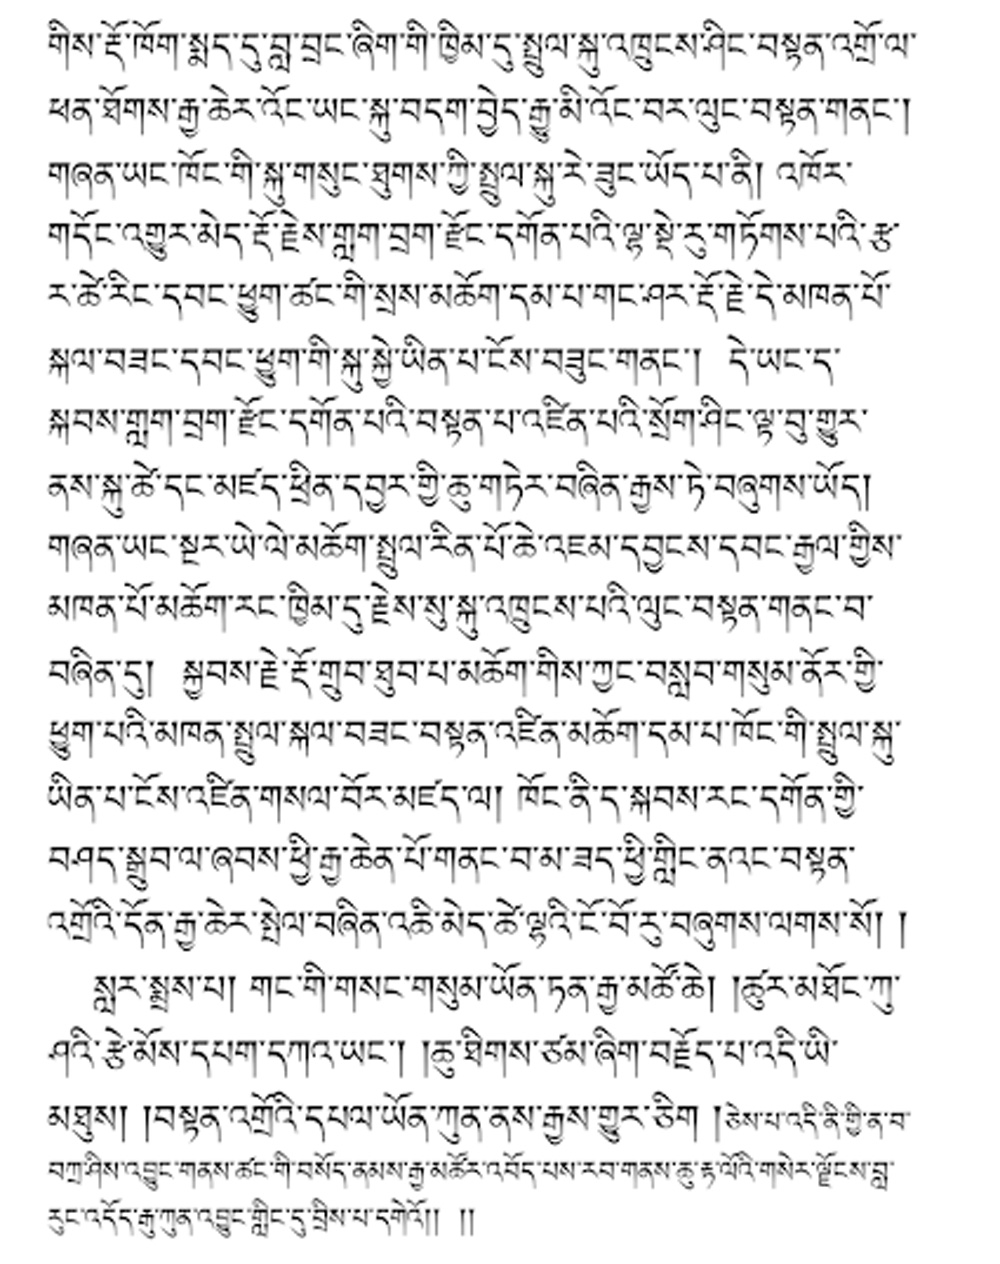 གིས་རྡོ་ཁོག་སྨད་དུ་བླ་བྲང་ཞིག་གི་ཁྱིམ་དུ་སྤྲུལ་སྐུ་འཁྲུངས་ཤིང་བསྟན་འགྲོ་ལ་
ཕན་ཐོགས་རྒྱ་ཆེར་འོང་ཡང་སྐུ་བདག་བྱེད་རྒྱུ་མི་འོང་བར་ལུང་བསྟན་གནང་།
གཞན་ཡང་ཁོང་གི་སྐུ་གསུང་ཐུགས་ཀྱི་སྤྲུལ་སྐུ་རེ་ཟུང་ཡོད་པ་ནི། འཁོར་
གདོང་འགྱུར་མེད་རྡོ་རྗེས་གླག་བྲག་རྫོང་དགོན་པའི་ལྷ་སྡེ་རུ་གཏོགས་པའི་རྩ་
ར་ཚེ་རིང་དབང་ཕྱུག་ཚང་གི་སྲས་མཆོག་དམ་པ་གང་ཤར་རྡོ་རྗེ་དེ་མཁན་པོ་
སྐལ་བཟང་དབང་ཕྱུག་གི་སྐུ་སྐྱེ་ཡིན་པ་ངོས་བཟུང་གནང་། དེ་ཡང་ད་
སྐབས་གླག་བྲག་རྫོང་དགོན་པའི་བསྟན་པ་འཛིན་པའི་སྲོག་ཤིང་ལྟ་བུ་གྱུར་
ནས་སྐུ་ཚེ་དང་མཛད་ཕྲིན་དབྱར་གྱི་ཆུ་གཏེར་བཞིན་རྒྱས་ཏེ་བཞུགས་ཡོད།
གཞན་ཡང་སྔར་ཡེ་ལེ་མཆོག་སྤྲུལ་རིན་པོ་ཆེ་འཇམ་དབྱངས་དབང་རྒྱལ་གྱིས་
མཁན་པོ་མཆོག་རང་ཁྱིམ་དུ་རྗེས་སུ་སྐུ་འཁྲུངས་པའི་ལུང་བསྟན་གནང་བ་
བཞིན་དུ། སྐྱབས་རྗེ་རྡོ་གྲུབ་ཐུབ་པ་མཆོག་གིས་ཀྱང་བསླབ་གསུམ་ནོར་གྱི་
ཕྱུག་པའི་མཁན་སྤྲུལ་སྐལ་བཟང་བསྟན་འཛིན་མཆོག་དམ་པ་ཁོང་གི་སྤྲུལ་སྐུ་
ཡིན་པ་ངོས་འཛིན་གསལ་བོར་མཛད་ལ། ཁོང་ནི་ད་སྐབས་རང་དགོན་གྱི་
བཤད་སྒྲུབ་ལ་ཞབས་ཕྱི་རྒྱ་ཆེན་པོ་གནང་བ་མ་ཟད་ཕྱི་གླིང་ནའང་བསྟན་
འགྲོའི་དོན་རྒྱ་ཆེར་སྤེལ་བཞིན་འཆི་མེད་ཚེ་ལྷའི་ངོ་བོ་རུ་བཞུགས་ལགས་སོ། །
སླར་སྨྲས་པ། གང་གི་གསང་གསུམ་ཡོན་ཏན་རྒྱ་མཚོ་ཆེ། །ཚུར་མཐོང་ཀུ་
ཤའི་རྩེ་མོས་དཔག་དཀའ་ཡང་། །ཆུ་ཐིགས་ཙམ་ཞིག་བརྗོད་པ་འདི་ཡི་
མཐུས། །བསྟན་འགྲོའི་དཔལ་ཡོན་ཀུན་ནས་རྒྱས་གྱུར་ཅིག །ཅེས་པ་འདི་ནི་གྱི་ན་བ་
བཀྲ་ཤིས་འབྱུང་གནས་ཚང་གི་བསོད་ནམས་རྒྱ་མཚོར་འབོད་པས་རབ་གནས་ཆུ་རྟ་ལོའི་གསེར་ལྗོངས་བླ་
རུང་འདོད་རྒུ་ཀུན་འབྱུང་གླིང་དུ་བྲིས་པ་དགེའོ།། །།